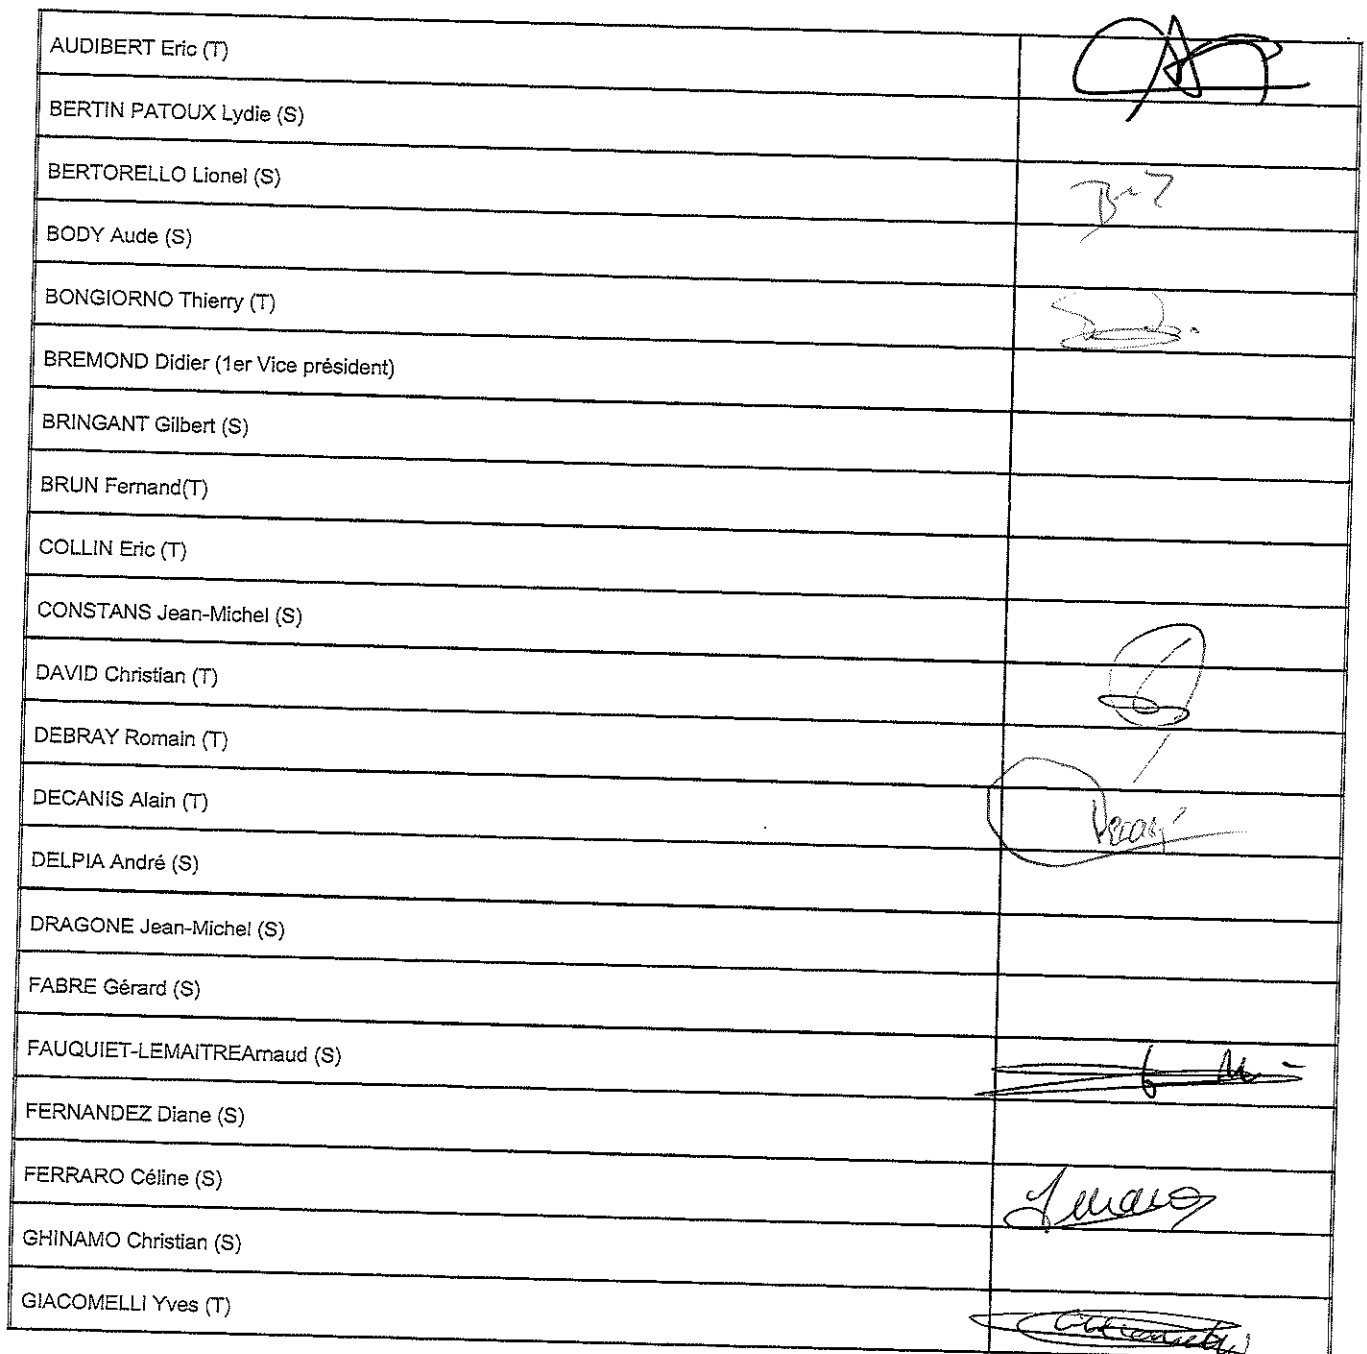 AUDIBERT Eric (T)
BERTIN PATOUX Lydie (S)
BERTORELLO Lionel (S)
BODY Aude (S)
BONGIORNO Thierry (T)
BREMOND Didier (1er Vice président)
BRINGANT Gilbert (S)
BRUN Fernand(T)
COLLIN Eric (T)
CONSTANS Jean-Michel (S)
DAVID Christian (T)
DEBRAY Romain (T)
DECANIS Alain (T)
DELPIA André (S)
DRAGONE Jean-Michel (S)
FABRE Gérard (S)
FAUQUIET-LEMAITREArnaud (S)
FERNANDEZ Diane (S)
FERRARO Céline (S)
GHINAMO Christian (S)
GIACOMELLI Yves (T)